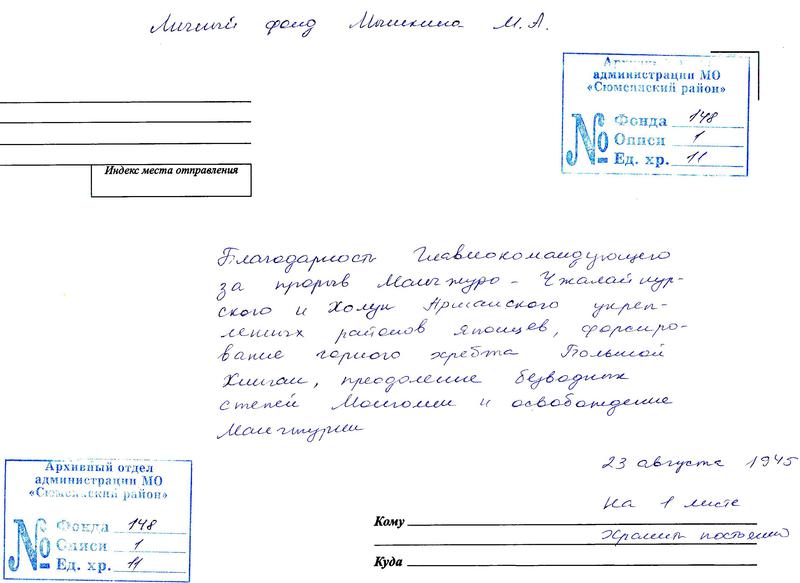 Личный фонд Мышкина М.А.
администрации МО
«Сюмсинский район»
№
Фонда 148
Описи 1
Ед. хр. 11
Индекс места отправления
Благодарность Главнокомандующего
за прорыв Маньчжуро - Чжалайнур-
ского и Холун Аршанского укреп-
ленных районов японцев, форсиро-
вание горного хребта Большой
Хинган, преодоление безводных
степей Монголии и освобождение
Манчжурии
23 августа 1945
на 1 листе
Хранить постоянно
Архивный отдел
администрации МО
«Сюмсинский район»
№
Фонда 148
Описи 1
Ед. хр. 11
Кому
Куда